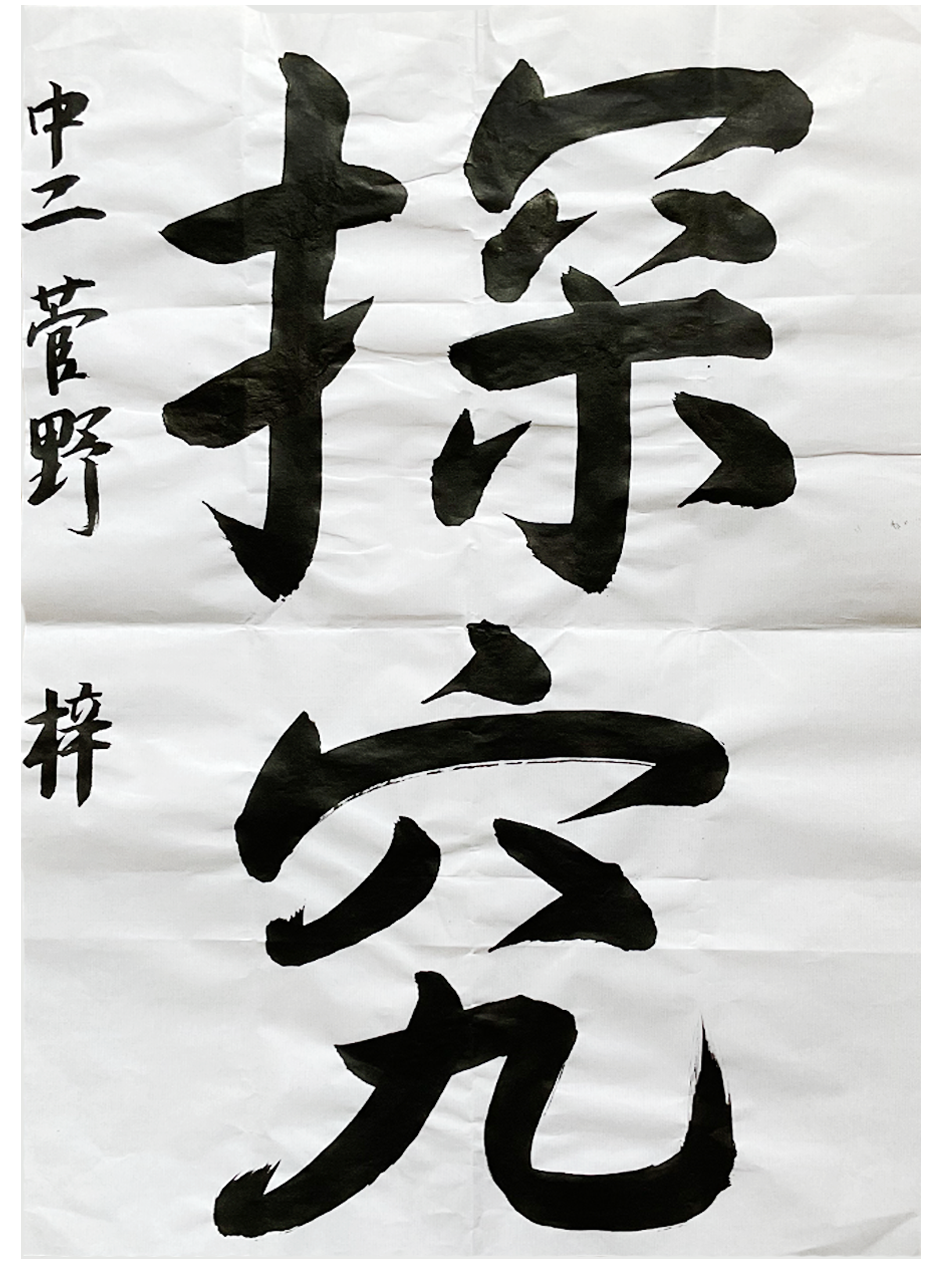 探究
中二 菅野 梓